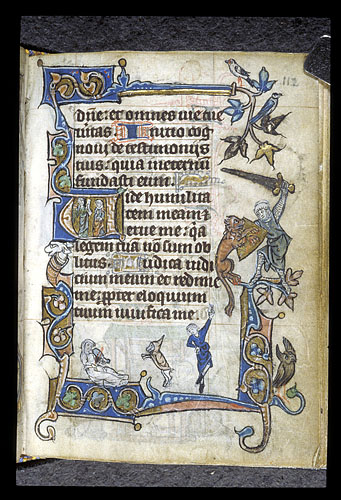 112
dñe: et omnes vie tue
veritas Initio cog
novi de testimoniis
tuis: quia in eternum
fundasti eum.
Vide humilita
tem meam et
erue me: qa
legem tuā nō sum ob
litus. Iudica iudi
cium meum et redime
me: propter eloquium
tuum vivifica me.